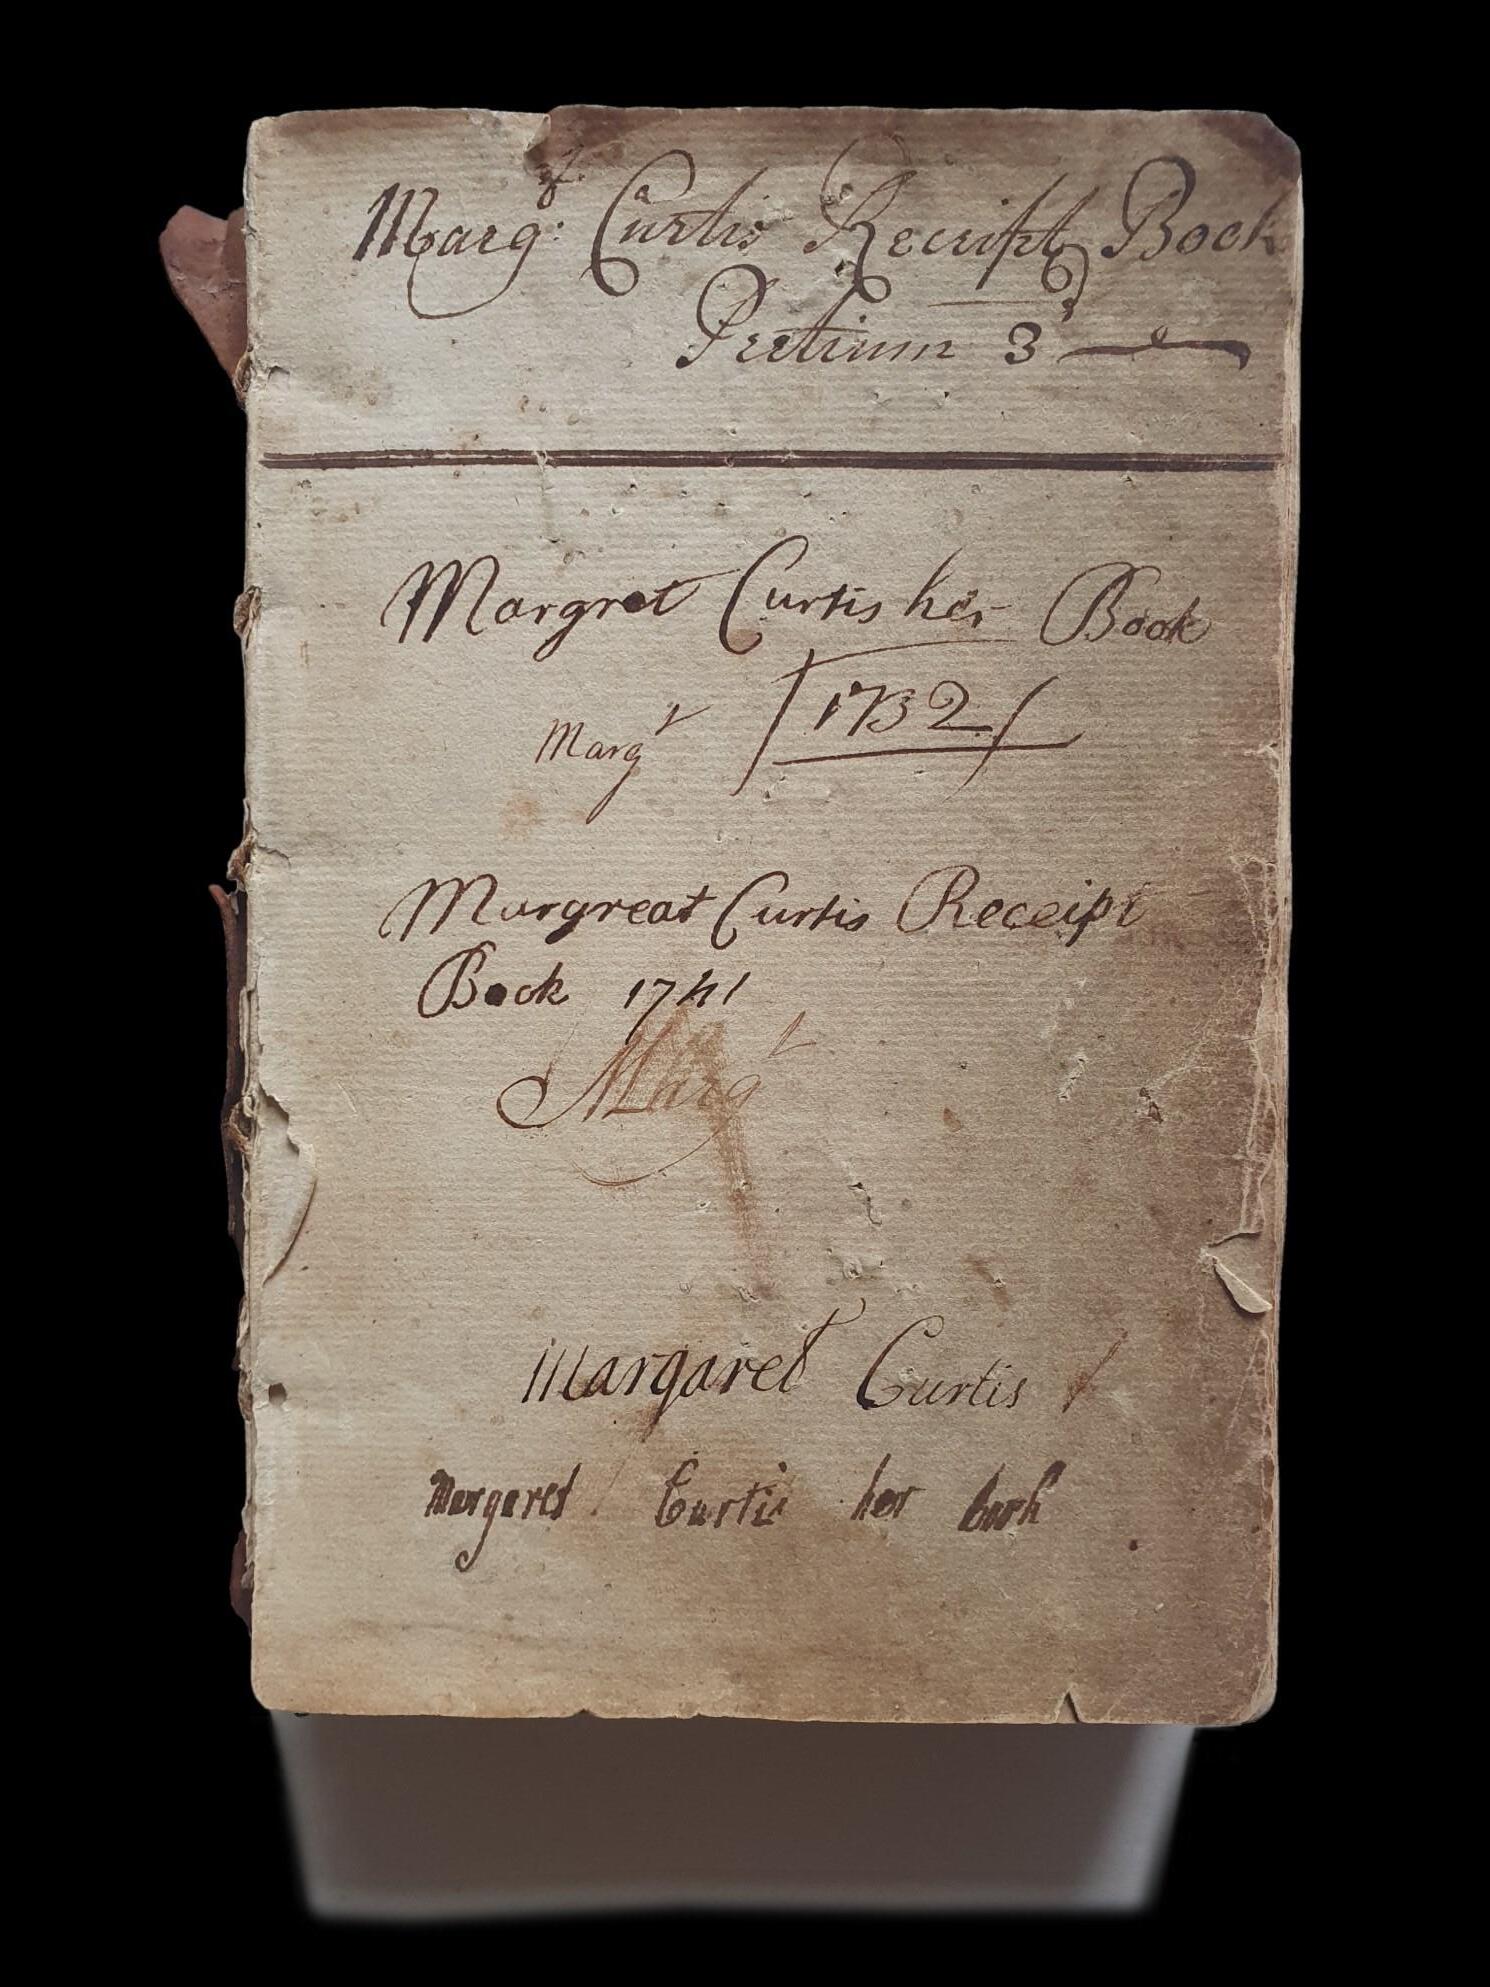 Marg:t Curtis Receipt Book
Pretium 3s
Margret Curtis her Book
1732
Margt
Margreat Curtis Receipt
Book 1741
Margt
Margaret Curtis
Margaret Curtis her book